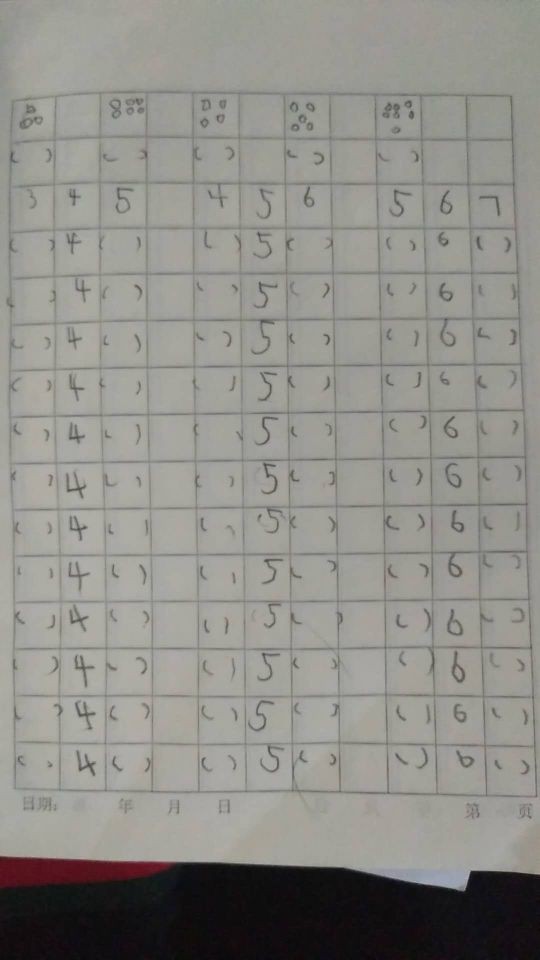 ( ) ( ) ( ) ( ) ( )
3 4 5 4 5 6 5 6 7
( ) 4 ( ) ( ) 5 ( ) ( ) 6 ( )
( ) 4 ( ) ( ) 5 ( ) ( ) 6 ( )
( ) 4 ( ) ( ) 5 ( ) ( ) 6 ( )
( ) 4 ( ) ( ) 5 ( ) ( ) 6 ( )
( ) 4 ( ) ( ) 5 ( ) ( ) 6 ( )
( ) 4 ( ) ( ) 5 ( ) ( ) 6 ( )
( ) 4 ( ) ( ) 5 ( ) ( ) 6 ( )
( ) 4 ( ) ( ) 5 ( ) ( ) 6 ( )
( ) 4 ( ) ( ) 5 ( ) ( ) 6 ( )
( ) 4 ( ) ( ) 5 ( ) ( ) 6 ( )
( ) 4 ( ) ( ) 5 ( ) ( ) 6 ( )
( ) 4 ( ) ( ) 5 ( ) ( ) 6 ( )
日期: 年 月 日 第 页